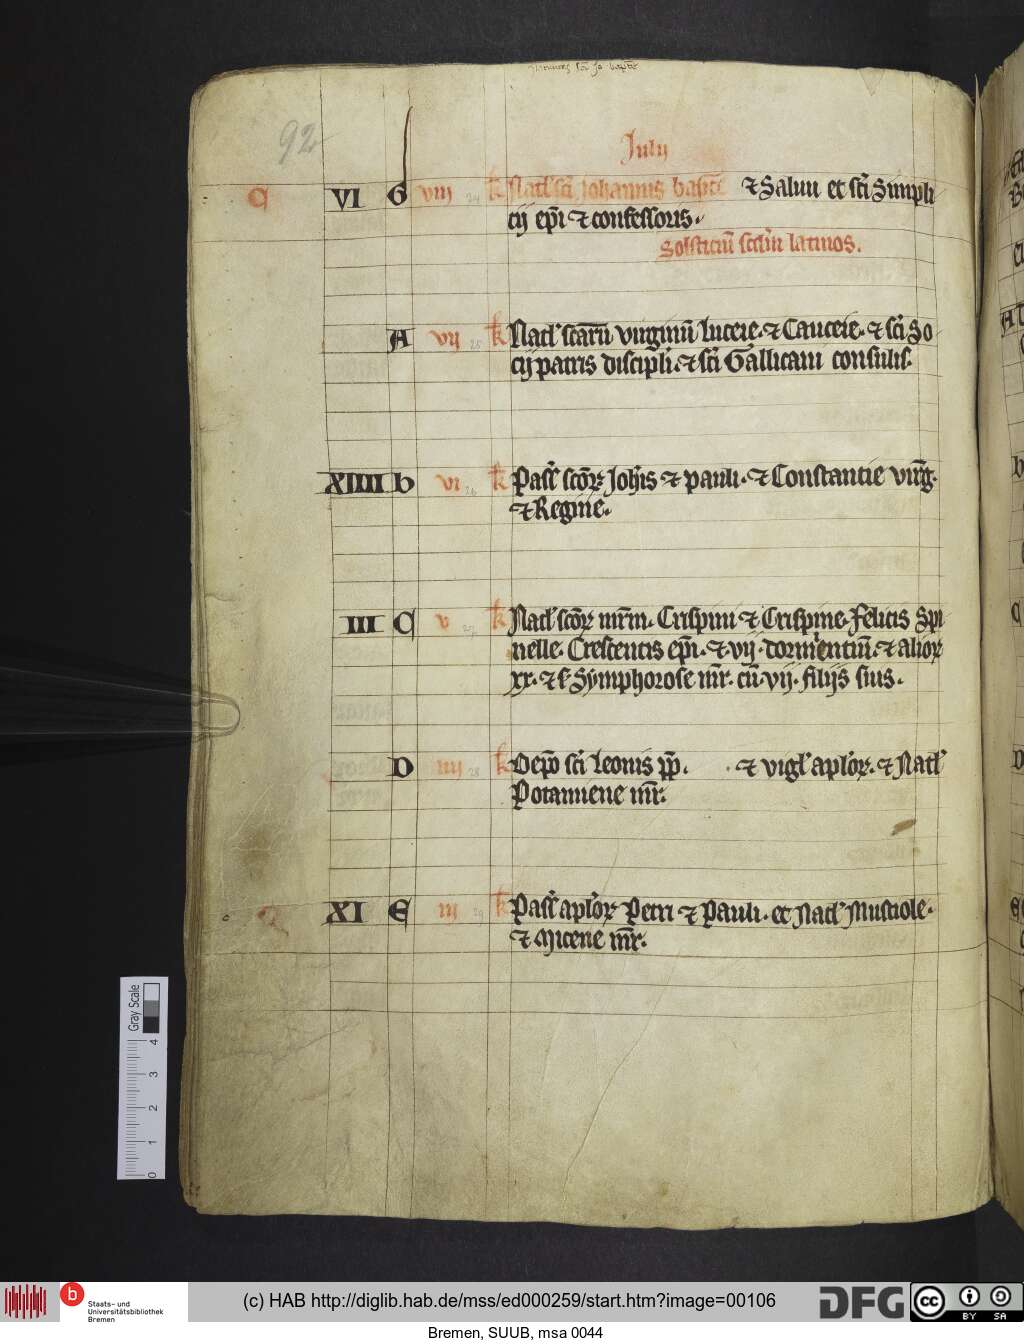 92
July
C VI G viii 24 k Natl' sci Johannis bapte ⁊ Salvii et sci Simpli
cij epi ⁊ confessoris.
Solsticiu scdm latinos.
A vij 25 k Natl' scaru virginu lucere. ⁊ Cauceie. ⁊ sci So
cij patris discipli. ⁊ sci Gallicani consulis.
XIIII b vi 26 k Pass' scor Johis ⁊ pauli. ⁊ Constantie virg.
⁊ Regine.
III C v 27 k Natl' scor mrm. Crispini ⁊ Crispine. Felicis Spi
nelle. Crescentis epi. ⁊ vij. dormientiu. ⁊ alior
xx. ⁊ s. Symphorose mr. cu vij. filijs suis.
D iiij 28 k Depo sci Leonis pp. ⁊ vigl' aplor. ⁊ Natl'
Potamiene mr.
XI E iij 29 k Pass' aplor Petri ⁊ Pauli. et Natl' Mustiole.
⁊ Micene mr.
Gray Scale
0 1 2 3 4
b Staats- und
Universitätsbibliothek
Bremen
(c) HAB http://diglib.hab.de/mss/ed000259/start.htm?image=00106
DFG
cc BY SA
Bremen, SUUB, msa 0044